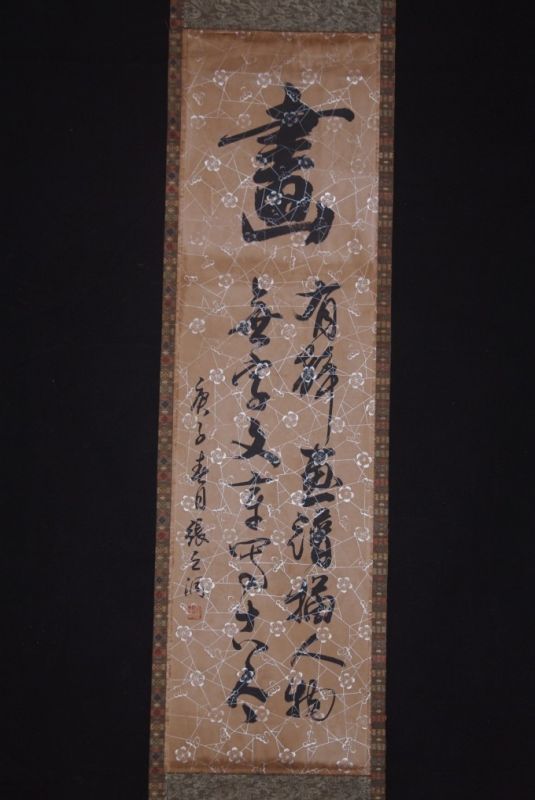 畫
有聲畫譜描人物
無字文章寫古今
庚子春月張之洞